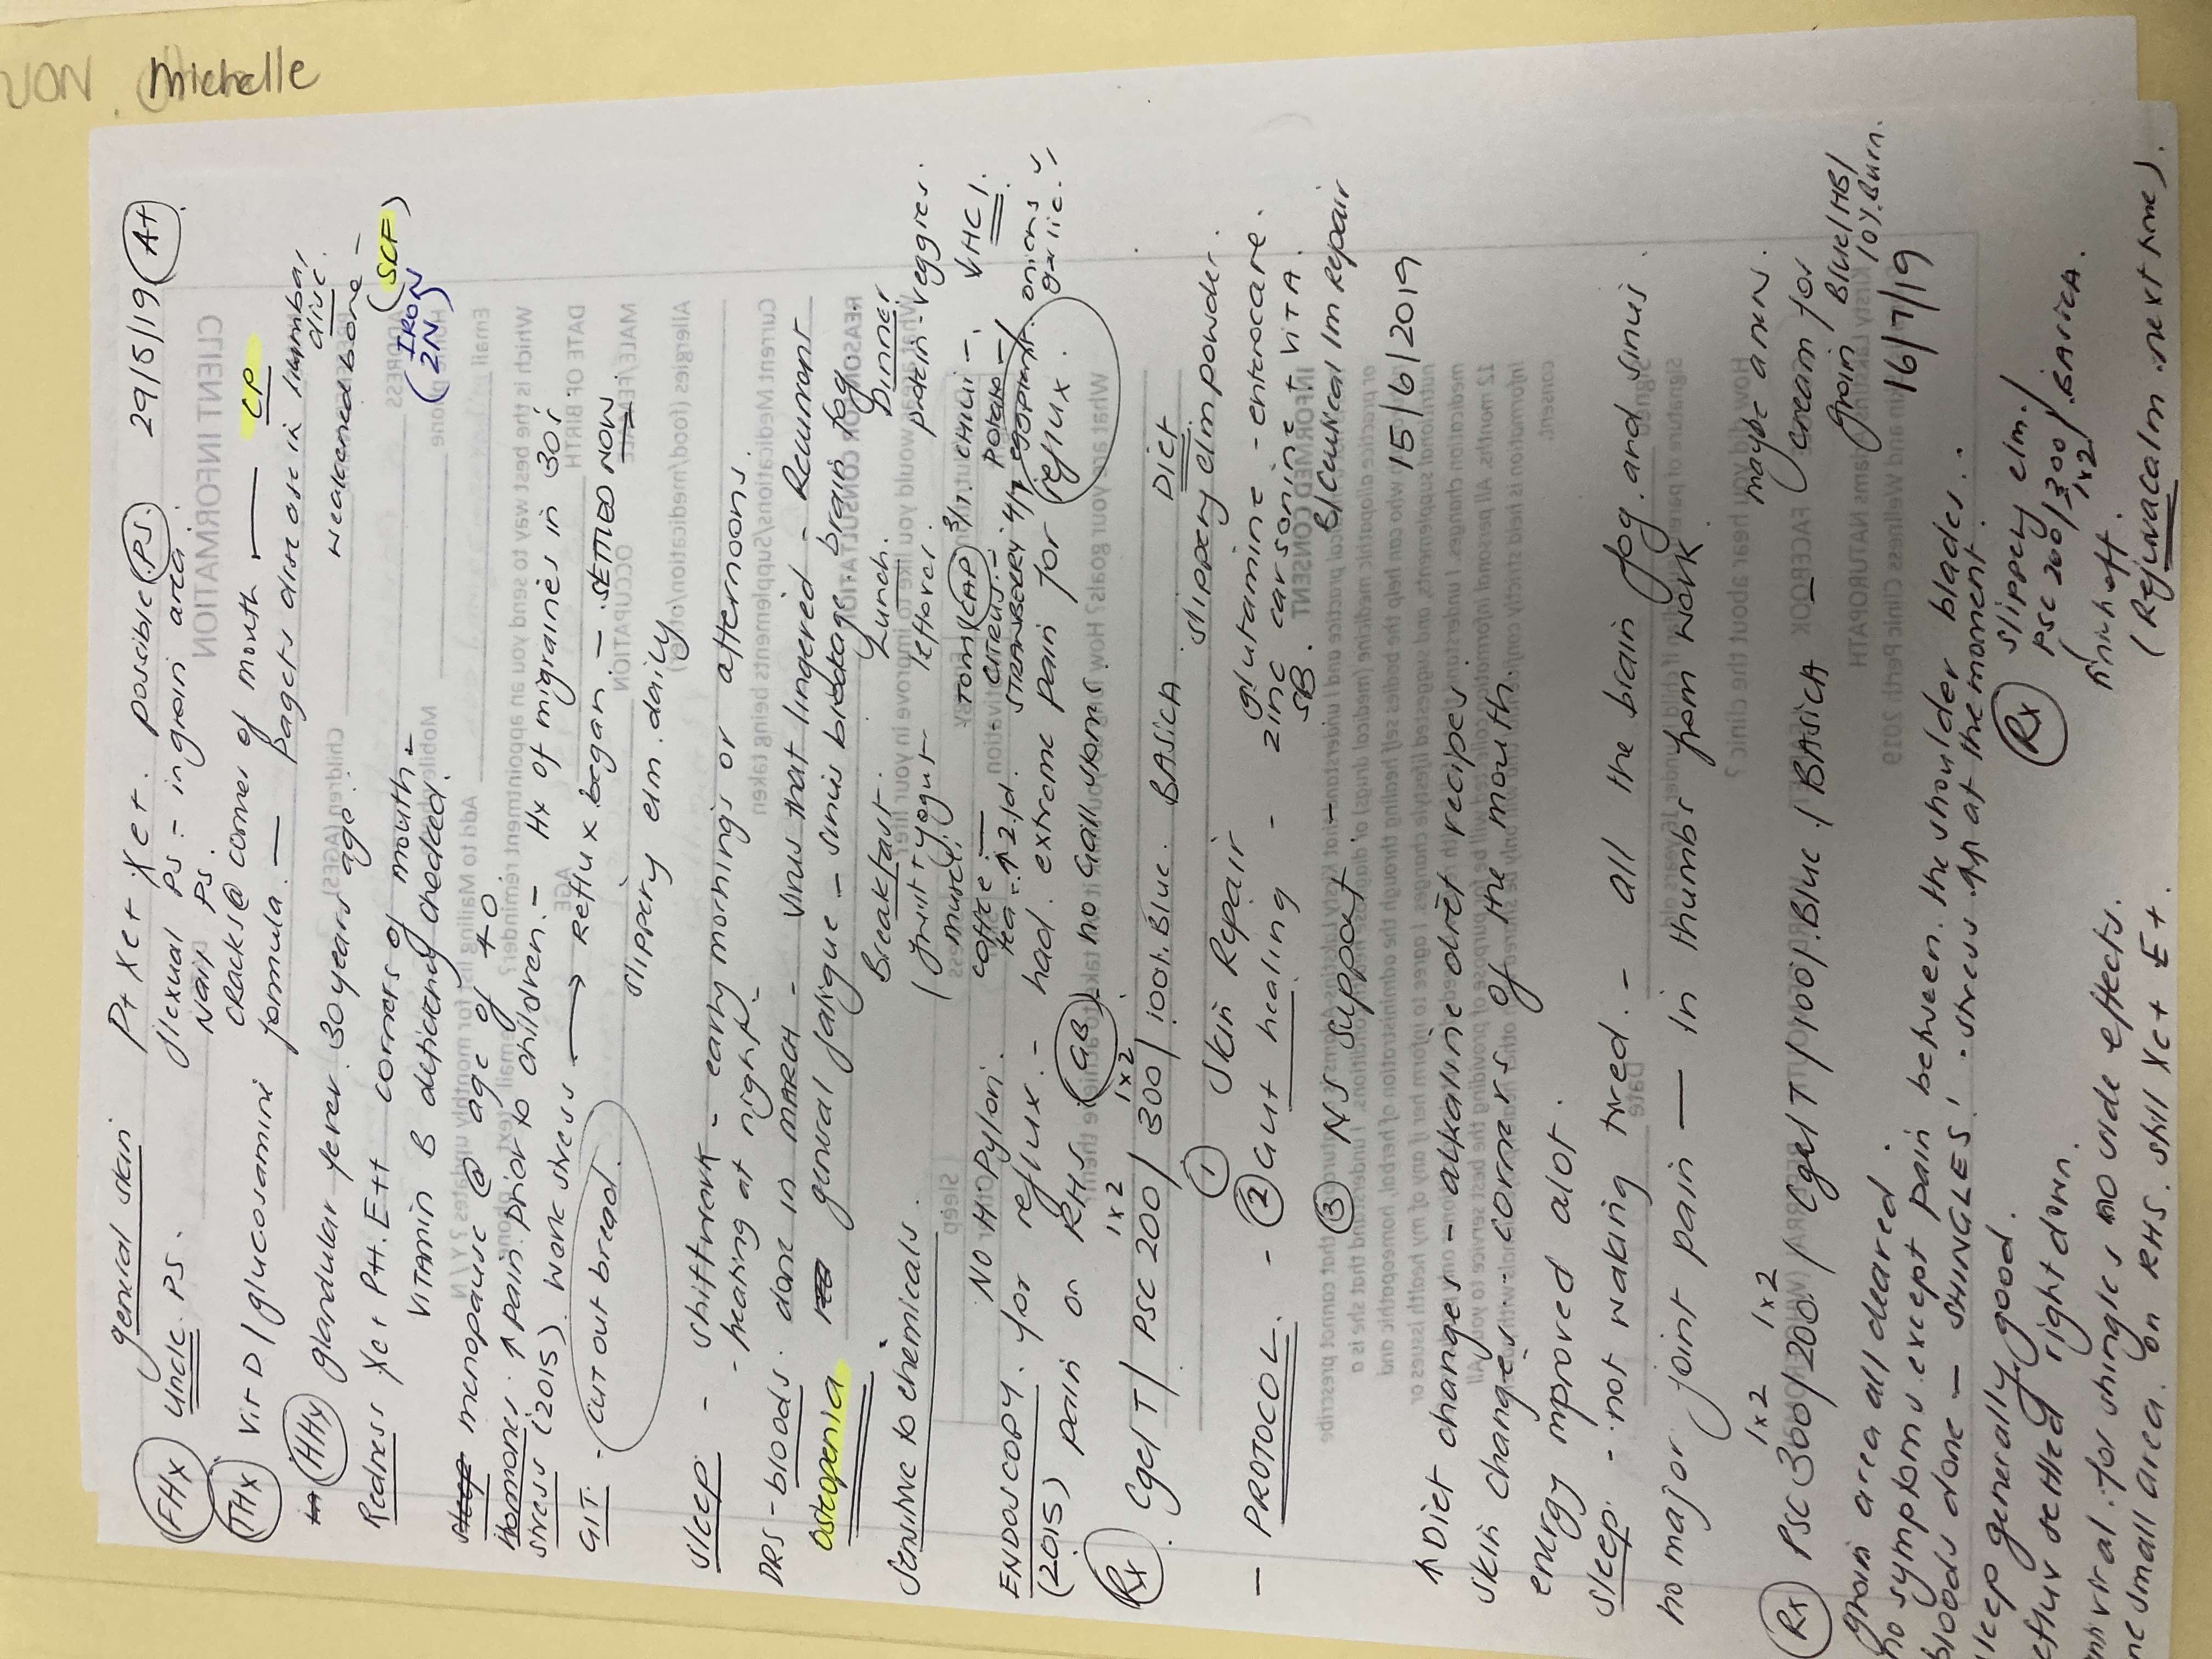 Michelle
genital skin P+ Xe+ Xe+. possible (PS). 29/5/19 (A+)
(FHx) Uncle. PS. flexual PS - in groin area.
Nail PS.
(THx) Vit D / glucosamine cracks @ corner of mouth — CP
formula. — pagets disease in lumbar
disc.
(HHy) glandular fever. 30 years ago. weakened bone -
Redness Xe+ P++. E++ corners of mouth - (SCF)
VITAMIN B deficiency checked? (IRON
ZN)
menopause @ age of 40
Hormones. ↑ pain prior to children. - Hx of migraines in 30s.
Stress (2015) work stress → Reflux began. - SETTLED NOW.
GIT. - cut out bread. slippery elm. daily
Sleep. - shiftwork - early mornings or afternoons.
- heating at night -
DRS - bloods. done in MARCH - Virus that lingered - Recurrent
Osteopenia general fatigue - sinus blockage brain fog
Sensitive to chemicals. Breakfast. Lunch. Dinner
(fruit + yogurt leftover. protein - veggies.
muesli.
NO H Pylori. coffee - TOM/CAP 3/7. CHILLI -. ↓HCl.
tea - ↑ 2/d. CITRUS - POTATO -/
STRAWBERRY 4/7 eggplant. onions /
garlic. /
ENDOSCOPY. for reflux. - had extreme pain for reflux.
(2015) pain on RHS. (GB) no Gallstones.
1x2 1x2
(Rx). Cgel T / PSC 200 / 300 / 100%.Blue. BASICA Diet
slippery elm powder.
- PROTOCOL. - ① Skin Repair
② Gut healing - glutamine - enterocare.
zinc carsonine + VIT A.
SB.
③ NS support - B/Cautical Im Repair
15/6/2019
↑ Diet changes - alkaline diet recipes
skin changes - corners of the mouth.
energy improved alot.
Sleep. - not waking tired. - all the brain fog. and sinus.
no major joint pain — in thumbs from work maybe arnn.
1x2 1x2
(Rx) PSC 300 / 200. / Cgel T / 100%. Blue. / BASICA - cream for
groin Blue/HB/
10%.Burn.
groin area all cleared. 16/7/19
no symptoms except pain between. the shoulder blades.
bloods done - SHINGLES! - stress. at the moment.
sleep generally good.
reflux settled right down. (Rx) slippery elm. /
PSC 200 / 300 / .BASICA.
1x2
antiviral. for shingles no side effects. finish off.
one small area. on RHS. still Xe+ E+. (Rejuvacalm. next time).